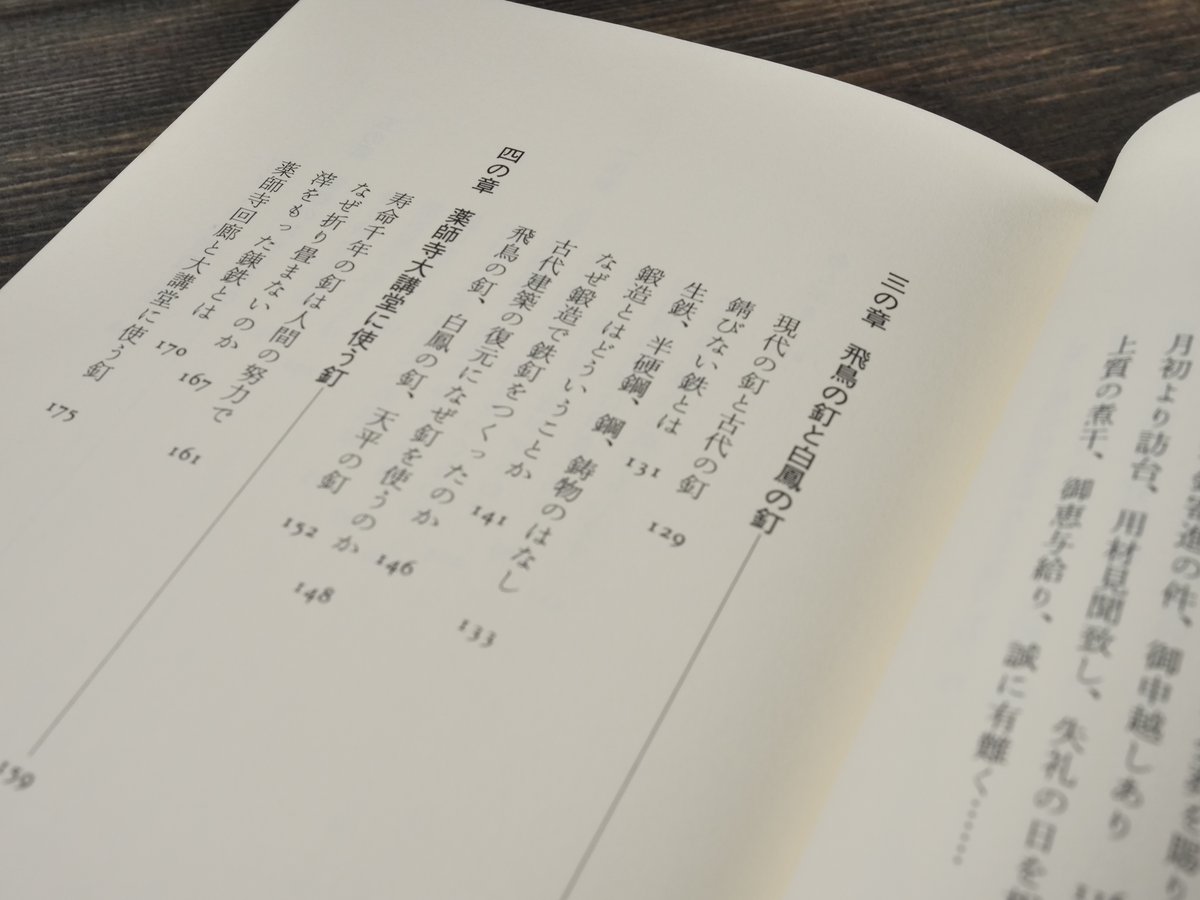 寄進の件、御申越しあり
月初より訪台、用材見聞致し、失礼の日を
上質の煮干、御恵与給り、誠に有難く……
三の章　飛鳥の釘と白鳳の釘
現代の釘と古代の釘　129
錆びない鉄とは　131
生鉄、半硬鋼、鋼、鋳物のはなし　133
鍛造とはどういうことか　141
なぜ鍛造で鉄釘をつくったのか　146
古代建築の復元になぜ釘を使うのか　148
飛鳥の釘、白鳳の釘、天平の釘　152
四の章　薬師寺大講堂に使う釘　159
寿命千年の釘は人間の努力で　161
なぜ折り畳まないのか　167
滓をもった錬鉄とは　170
薬師寺回廊と大講堂に使う釘　175